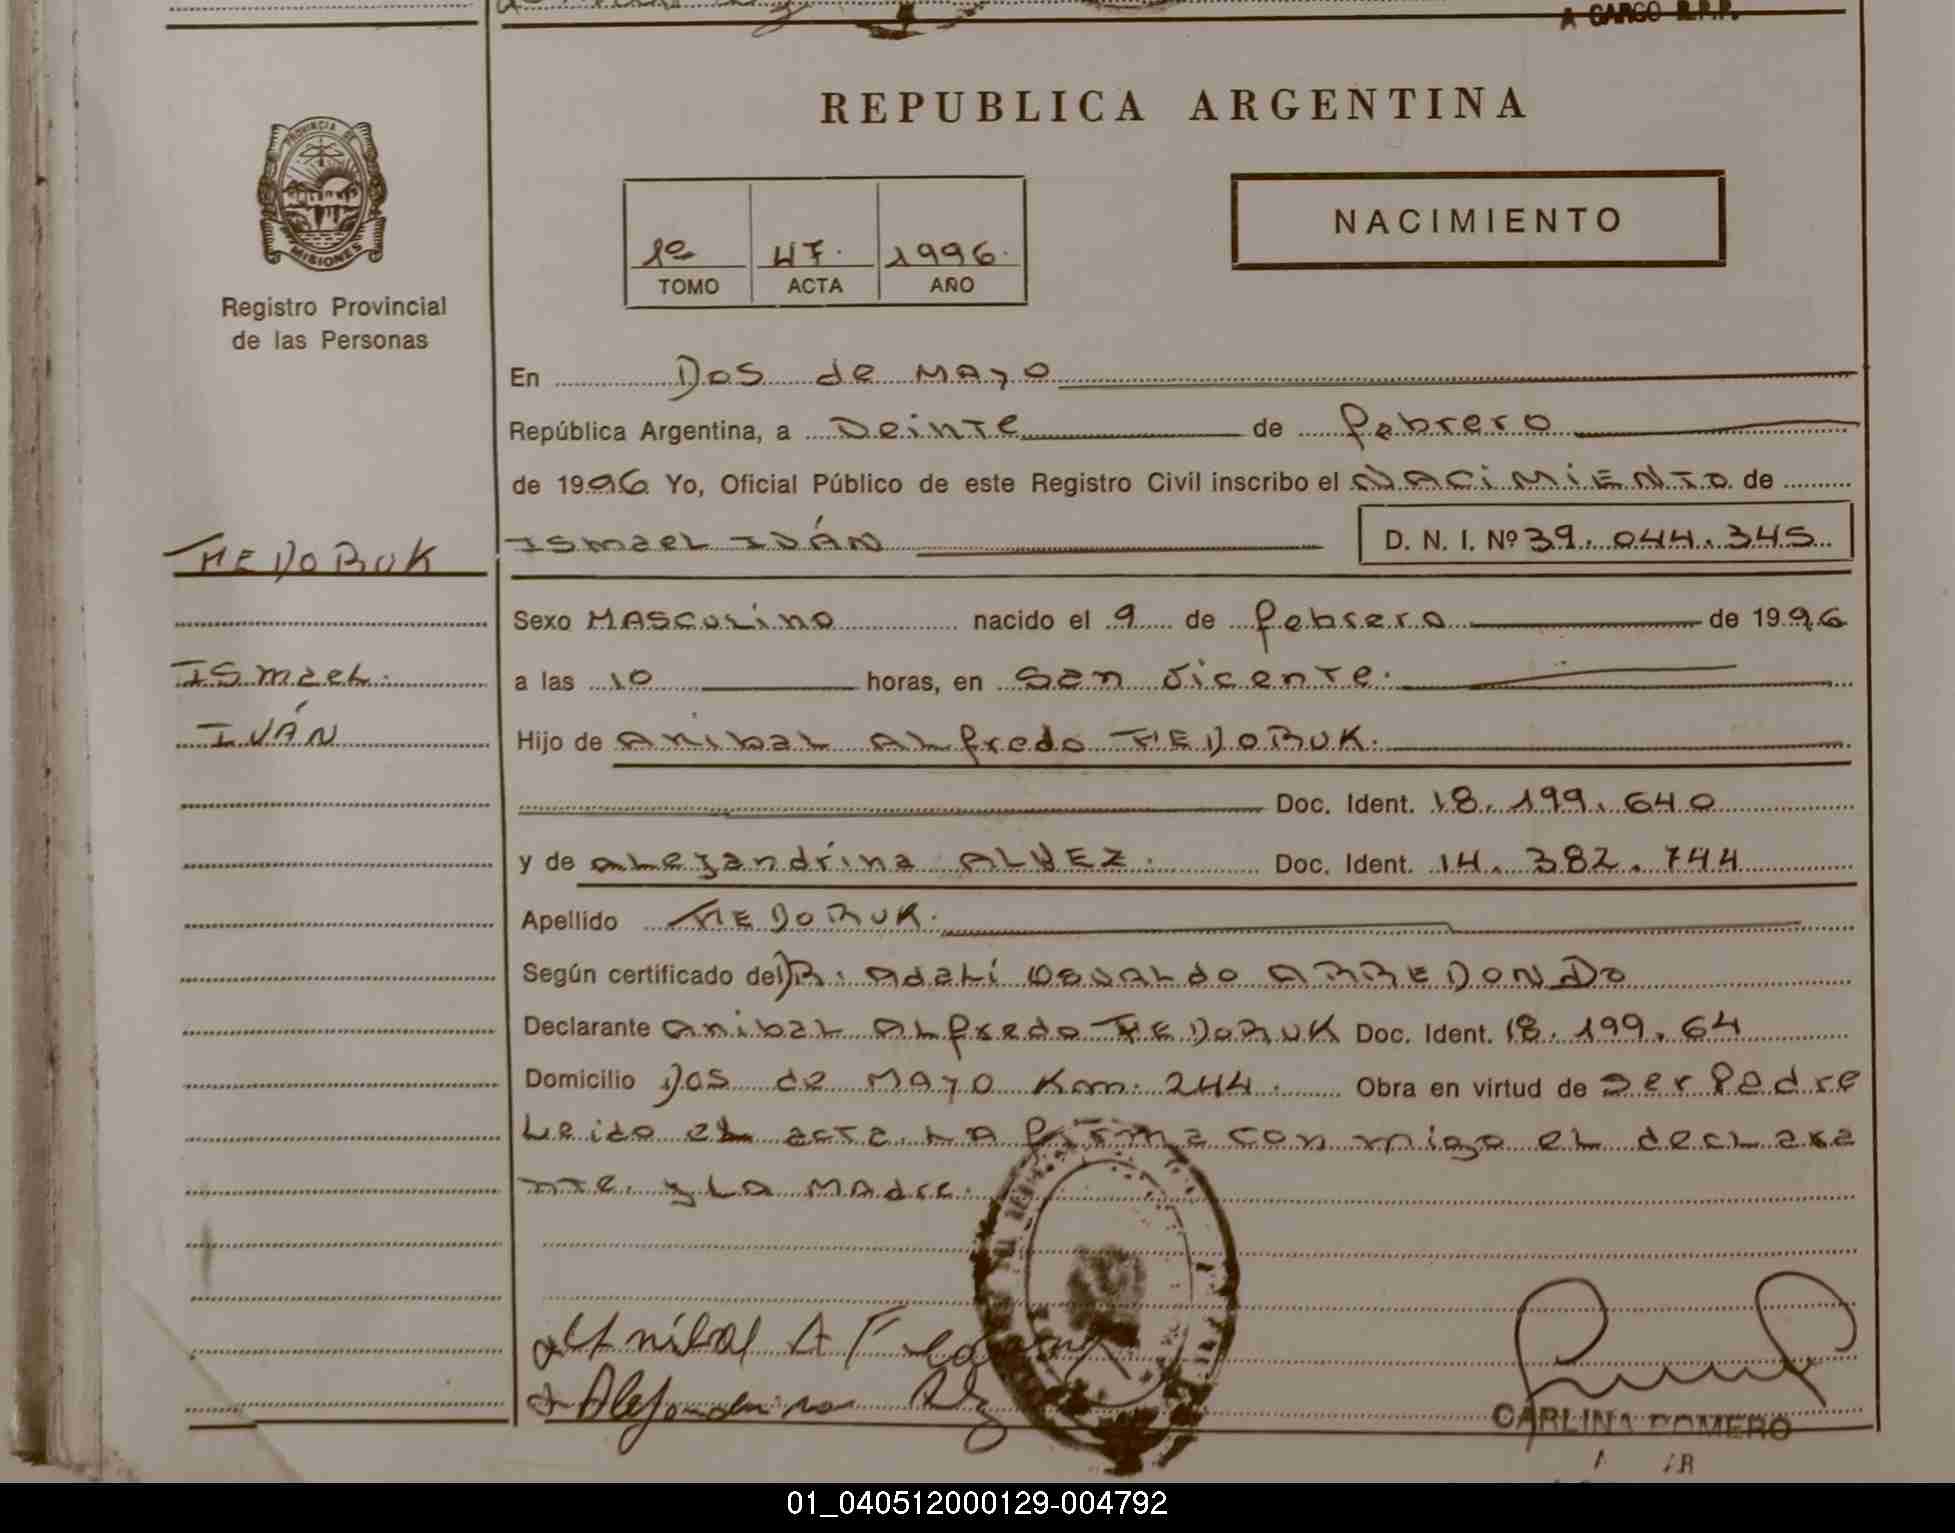 A CARGO R.P.P.
REPUBLICA ARGENTINA
PROVINCIA DE
MISIONES
Registro Provincial
de las Personas
1º 47. 1996.
TOMO ACTA AÑO
NACIMIENTO
En Dos de MAyo
República Argentina, a Veinte de febrero
de 1996 Yo, Oficial Público de este Registro Civil inscribo el NACiMiENTO de
FEDORUK
Ismael IVÁN D. N. I. Nº 39.044.345
Sexo MAScuLino nacido el 9 de febrero de 1996
Ismael.
a las 10 horas, en San Vicente.
IVÁN
Hijo de Anibal ALfredo FEDORUK.
Doc. Ident. 18.199.640
y de ALejandrina ALVEZ. Doc. Ident. 14.382.744
Apellido FEDORUK.
Según certificado del DR: AdaLí OSVALdo ARREDONDo
Declarante AnibaL ALfredo FEDORUK Doc. Ident. 18.199.64
Domicilio Dos de MAyo Km. 244. Obra en virtud de ser Padre
Leido el acta LA firma con migo el decLara
nte. y LA MAdre.
Anibal A F
Alejandrina
CARLINA ROMERO
01_040512000129-004792